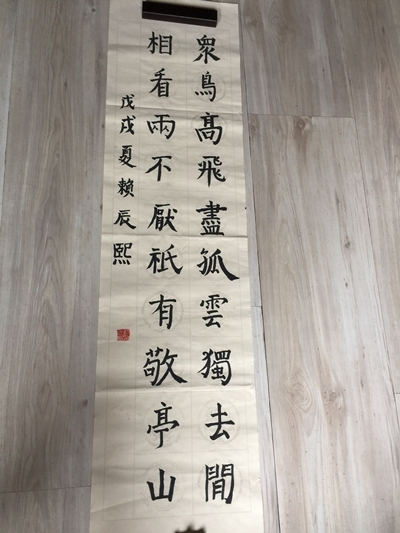 眾鳥髙飛盡孤雲獨去閒
相看兩不厭祇有敬亭山
戊戌夏賴辰熙